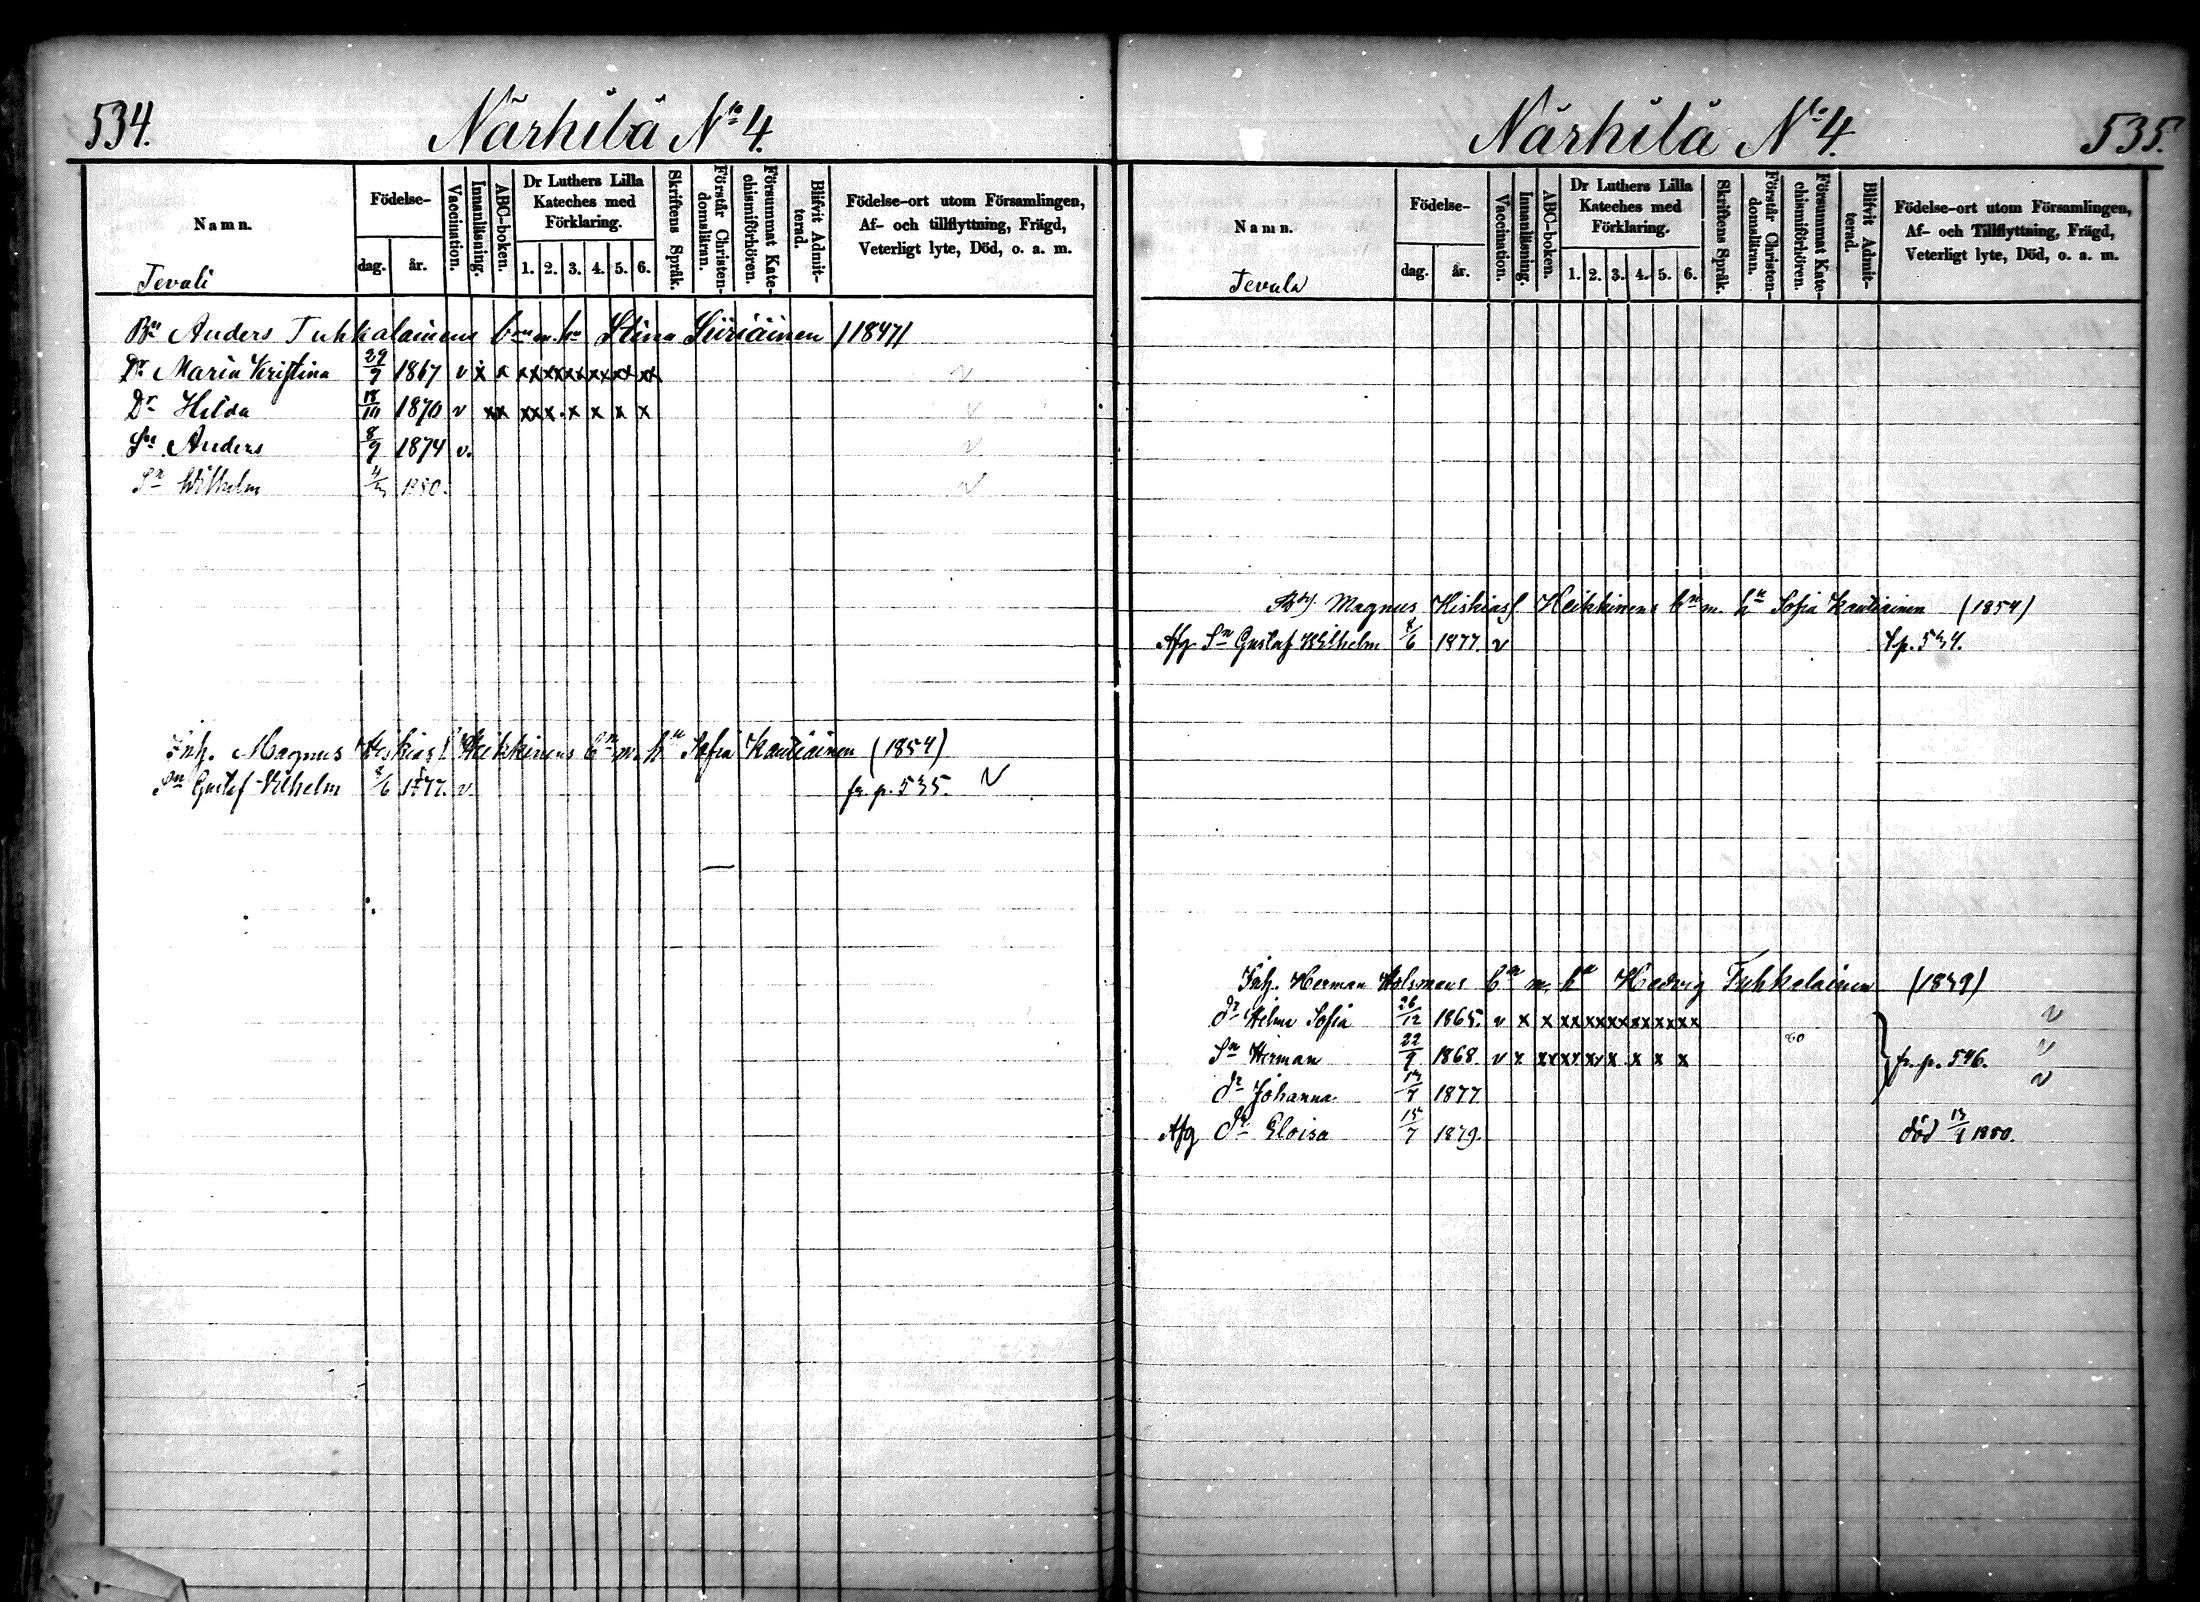 534.
Närhilä No 4.
Namn.
Födelse-
dag.
år.
Vaccination.
Innanläsning.
ABC-boken.
Dr Luthers Lilla
Kateches med
Förklaring.
1. 2. 3. 4. 5. 6.
Skriftens Språk.
Förstår Christen-
domsläran.
Försummat Kate-
chismiförhören.
Blifvit Admit-
terad.
Födelse-ort utom Församlingen,
Af- och tillflyttning, Frägd,
Veterligt lyte, Död, o. a. m.
Tevali
Bn Anders Tuhkalainens bn m. hu Stina Siiriäinen (1847)
Dr Maria Kristina 29/9 1867 v x x xx xx xx xx xx xx v
Dr Hilda 18/10 1870 v xx xx x x x x x v
Sn Anders 8/9 1874 v. v
Sn Wilhelm 1880. v
Inh. Magnus Heikkinens bn m. hu Sofia Kautiainen (1854)
Sn Gustaf Vilhelm 8/6 1877. v. fr. p. 535. v
Närhilä No 4.
535.
Namn.
Födelse-
dag.
år.
Vaccination.
Innanläsning.
ABC-boken.
Dr Luthers Lilla
Kateches med
Förklaring.
1. 2. 3. 4. 5. 6.
Skriftens Språk.
Förstår Christen-
domsläran.
Försummat Kate-
chismiförhören.
Blifvit Admit-
terad.
Födelse-ort utom Församlingen,
Af- och Tillflyttning, Frägd,
Veterligt lyte, Död, o. a. m.
Tevala
Magnus Heikkinens bn m. hu Sofia Kautiainen (1854)
Afg Sn Gustaf Wilhelm 8/6 1877. v t. p. 534.
Inh. Herman Holsmans bn m. hu Hedvig Tuhkalainen (1839)
dr Sofia 26/12 1865. v x x xx xx xx xx xx xx v
Sn Herman 22/9 1868. v x xx xx xx x x x x 80 fr. p. 546. v
dr Johanna 1877 v
Afg dr Eloisa 15/7 1879. död 13/4 1880.